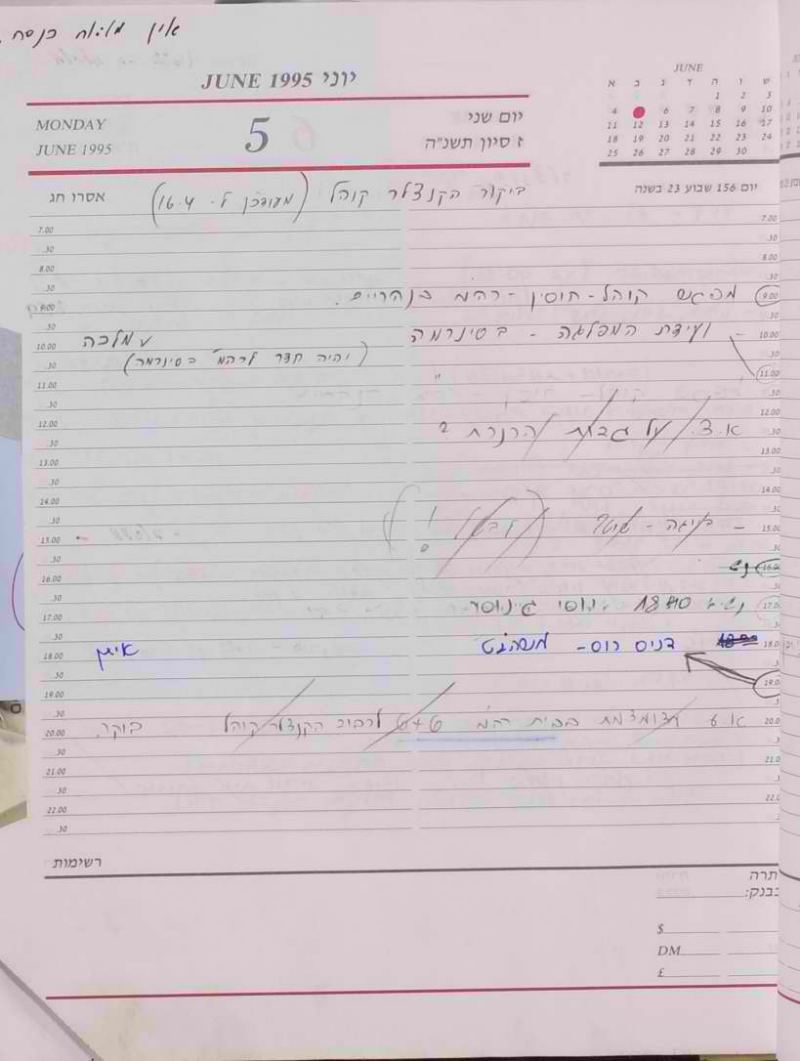 אין מליאה כנסת.
JUNE 1995 יוני
JUNE
א ב ג ד ה ו ש
1 2 3
4 6 7 8 9 10
11 12 13 14 15 16 17
18 19 20 21 22 23 24
25 26 27 28 29 30
MONDAY
JUNE 1995
5
יום שני
ז סיון תשנ"ה
יום 156 שבוע 23 בשנה
אסרו חג
ביקור הקנצלר קוהל (מעודכן ל- 16.4)
7.00
.30
8.00
.30
9.00 מפגש קוהל - חוסין - רהמ בנהריים.
.30
10.00 - ועידת המפלגה - בסינרמה
(יהיה חדר לרהמ בסינרמה)
.30
11.00 "
.30
12.00
.30 א.צ. על גבעת
13.00
.30
14.00
.30
15.00 -
.30
16.00
.30
17.00 1840
.30
18.00 דניס רוס -
.30
19.00
.30
20.00 א.ע מצומצמת בבית רהמ לכבוד הקנצלר קוהל בוקר.
.30
21.00
.30
22.00
.30
רשימות
יתרה
בבנק:
$
DM
£